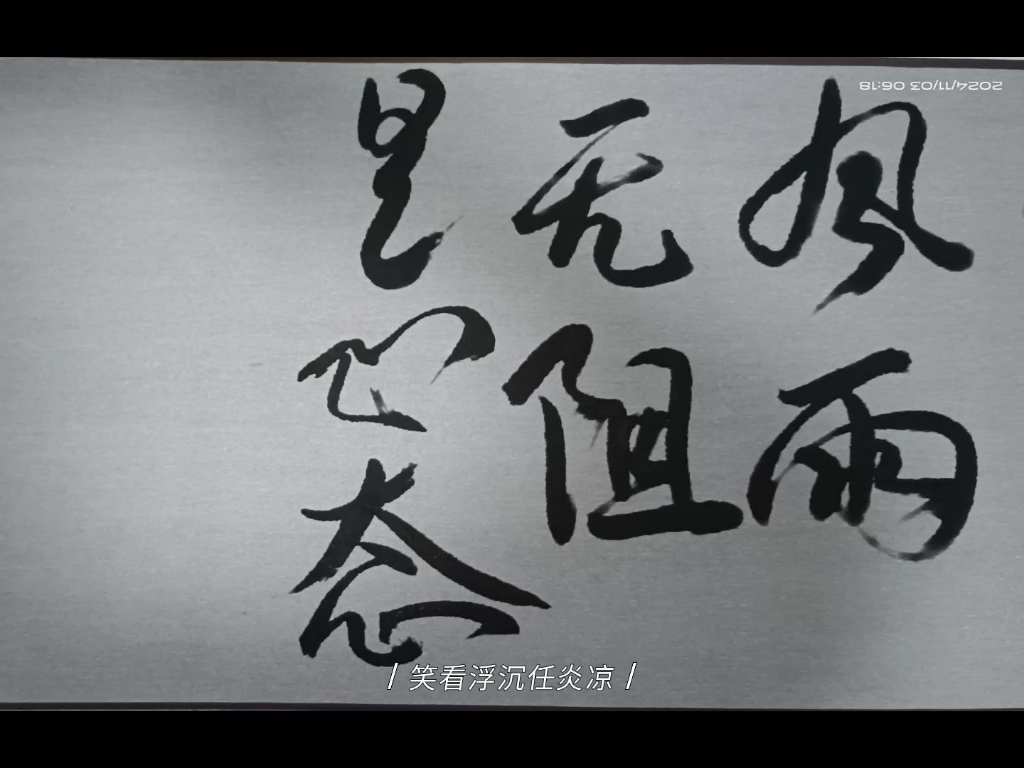 风雨
无阻
是心态
2024/11/03 06:18
/ 笑看浮沉任炎凉 /